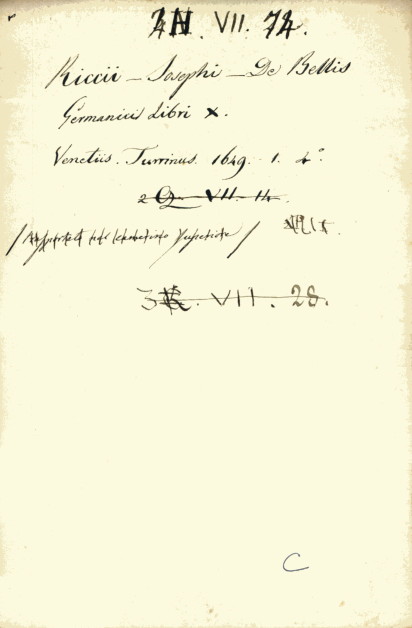 H. VII. 74.
Riccii – Josephi – De Bellis
Germanici Libri X.
Venetiis. Turrinus. 1649. 1. 4°
2 Q. VII. 14.
3 . VII. 28.
C